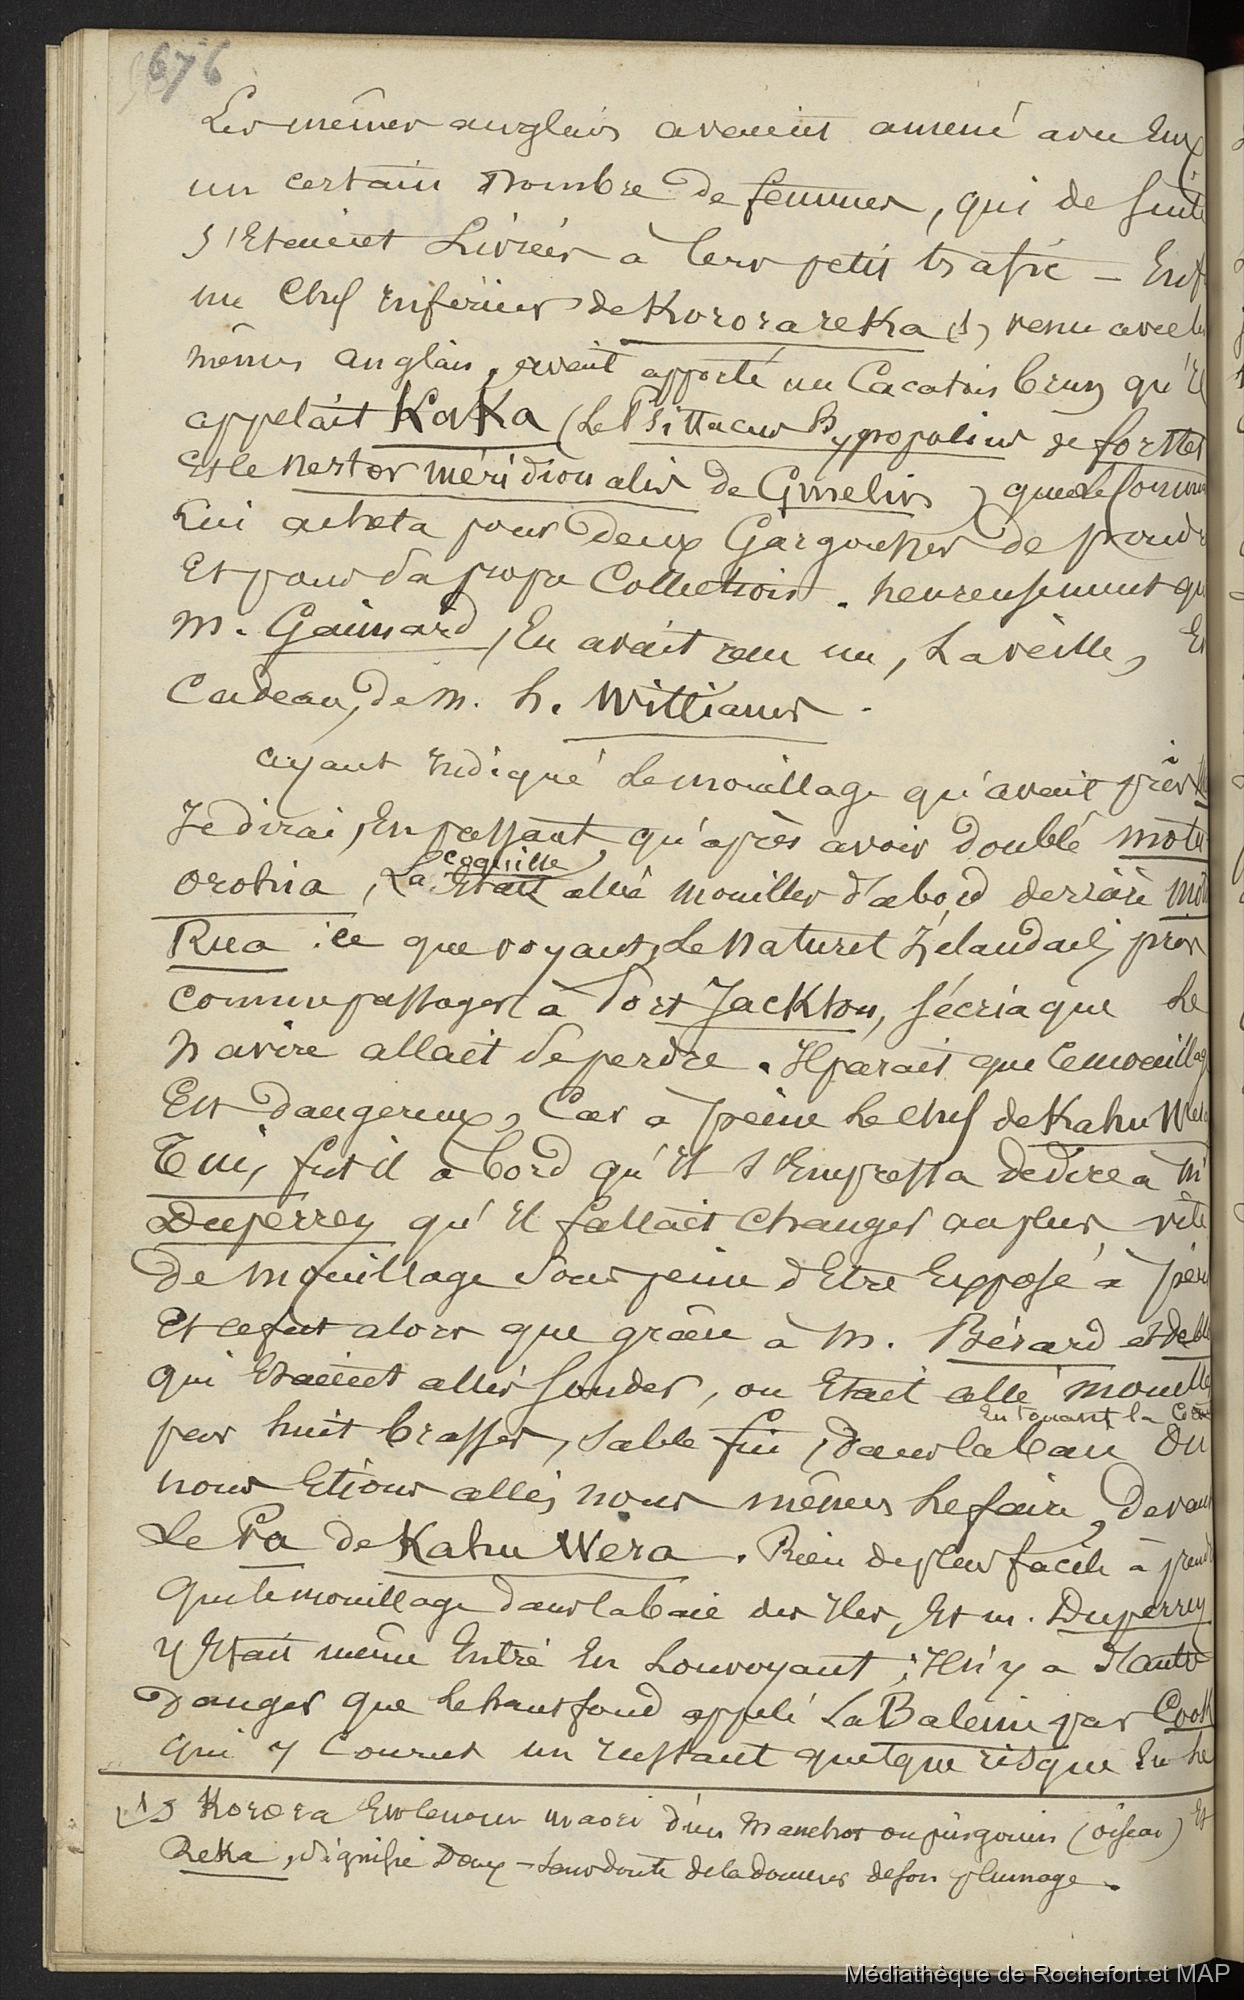 676
Les mêmes anglais avaient amené avec Eux
un certain Nombre De femmes, qui de suite
s'Etaient Livrées à leur petit trafic — Enf
un Chef inférieur de Kororareka (1) venu avec les
mêmes anglais, avait apporté un Cacatois brun qu'il
appelait KaKa (Le Psittacus hypopolius de forster
Et le nestor méridionalis de Gmelin) que le
Lui acheta pour Deux Gargousses de poudre
Et pour sa propre Collection. heureusement qu
M. Gaimard, En avait reçu un, La veille, En
Cadeau, de M. h. Williams.
ayant indiqué Le mouillage qu'avait pris
Je dirai, En passant, qu'après avoir Doublé motu
orohia, La coquille Etait allé mouiller D'abord derrière Motu
Rua : ce que voyant, Le Naturel Zélandais, pris
comme passager à Port Jackson, s'écria que Le
Navire allait se perdre. Il parait que ce mouillage
Est dangereux, Car à peine Le chef de Kahu Wera
Tui, fut il à bord qu'il s'Empressa de dire à Mr
Duperrey qu'il fallait changer au plus vite
De mouillage sous peine d'Etre Exposé à périr
Et ce fut alors que grâce à M. Bérard et de Blo
qui Etaient allés sonder, on Etait allé mouiller
par huit brasses, sable fin, dans la baie Ou
En rquant la
nous Etions allés nous mêmes Le faire, devant
Le Pa de Kahu Wera. Rien de plus facile à prendre
Que le mouillage dans la baie des Iles, Et M. Duperrey
y Etait même Entré En Louvoyant ; Il n'y a D'autre
Danger que Le haut fond appelé La Baleine par Cook
qui y Courut un instant quelque risque En Le
(1) Korora Est le nom maori d'un Manchot ou pingouin (oiseau) Et
Reka, signifie Doux – sans doute de la douceur de son plumage.
Médiathèque de Rochefort et MAP